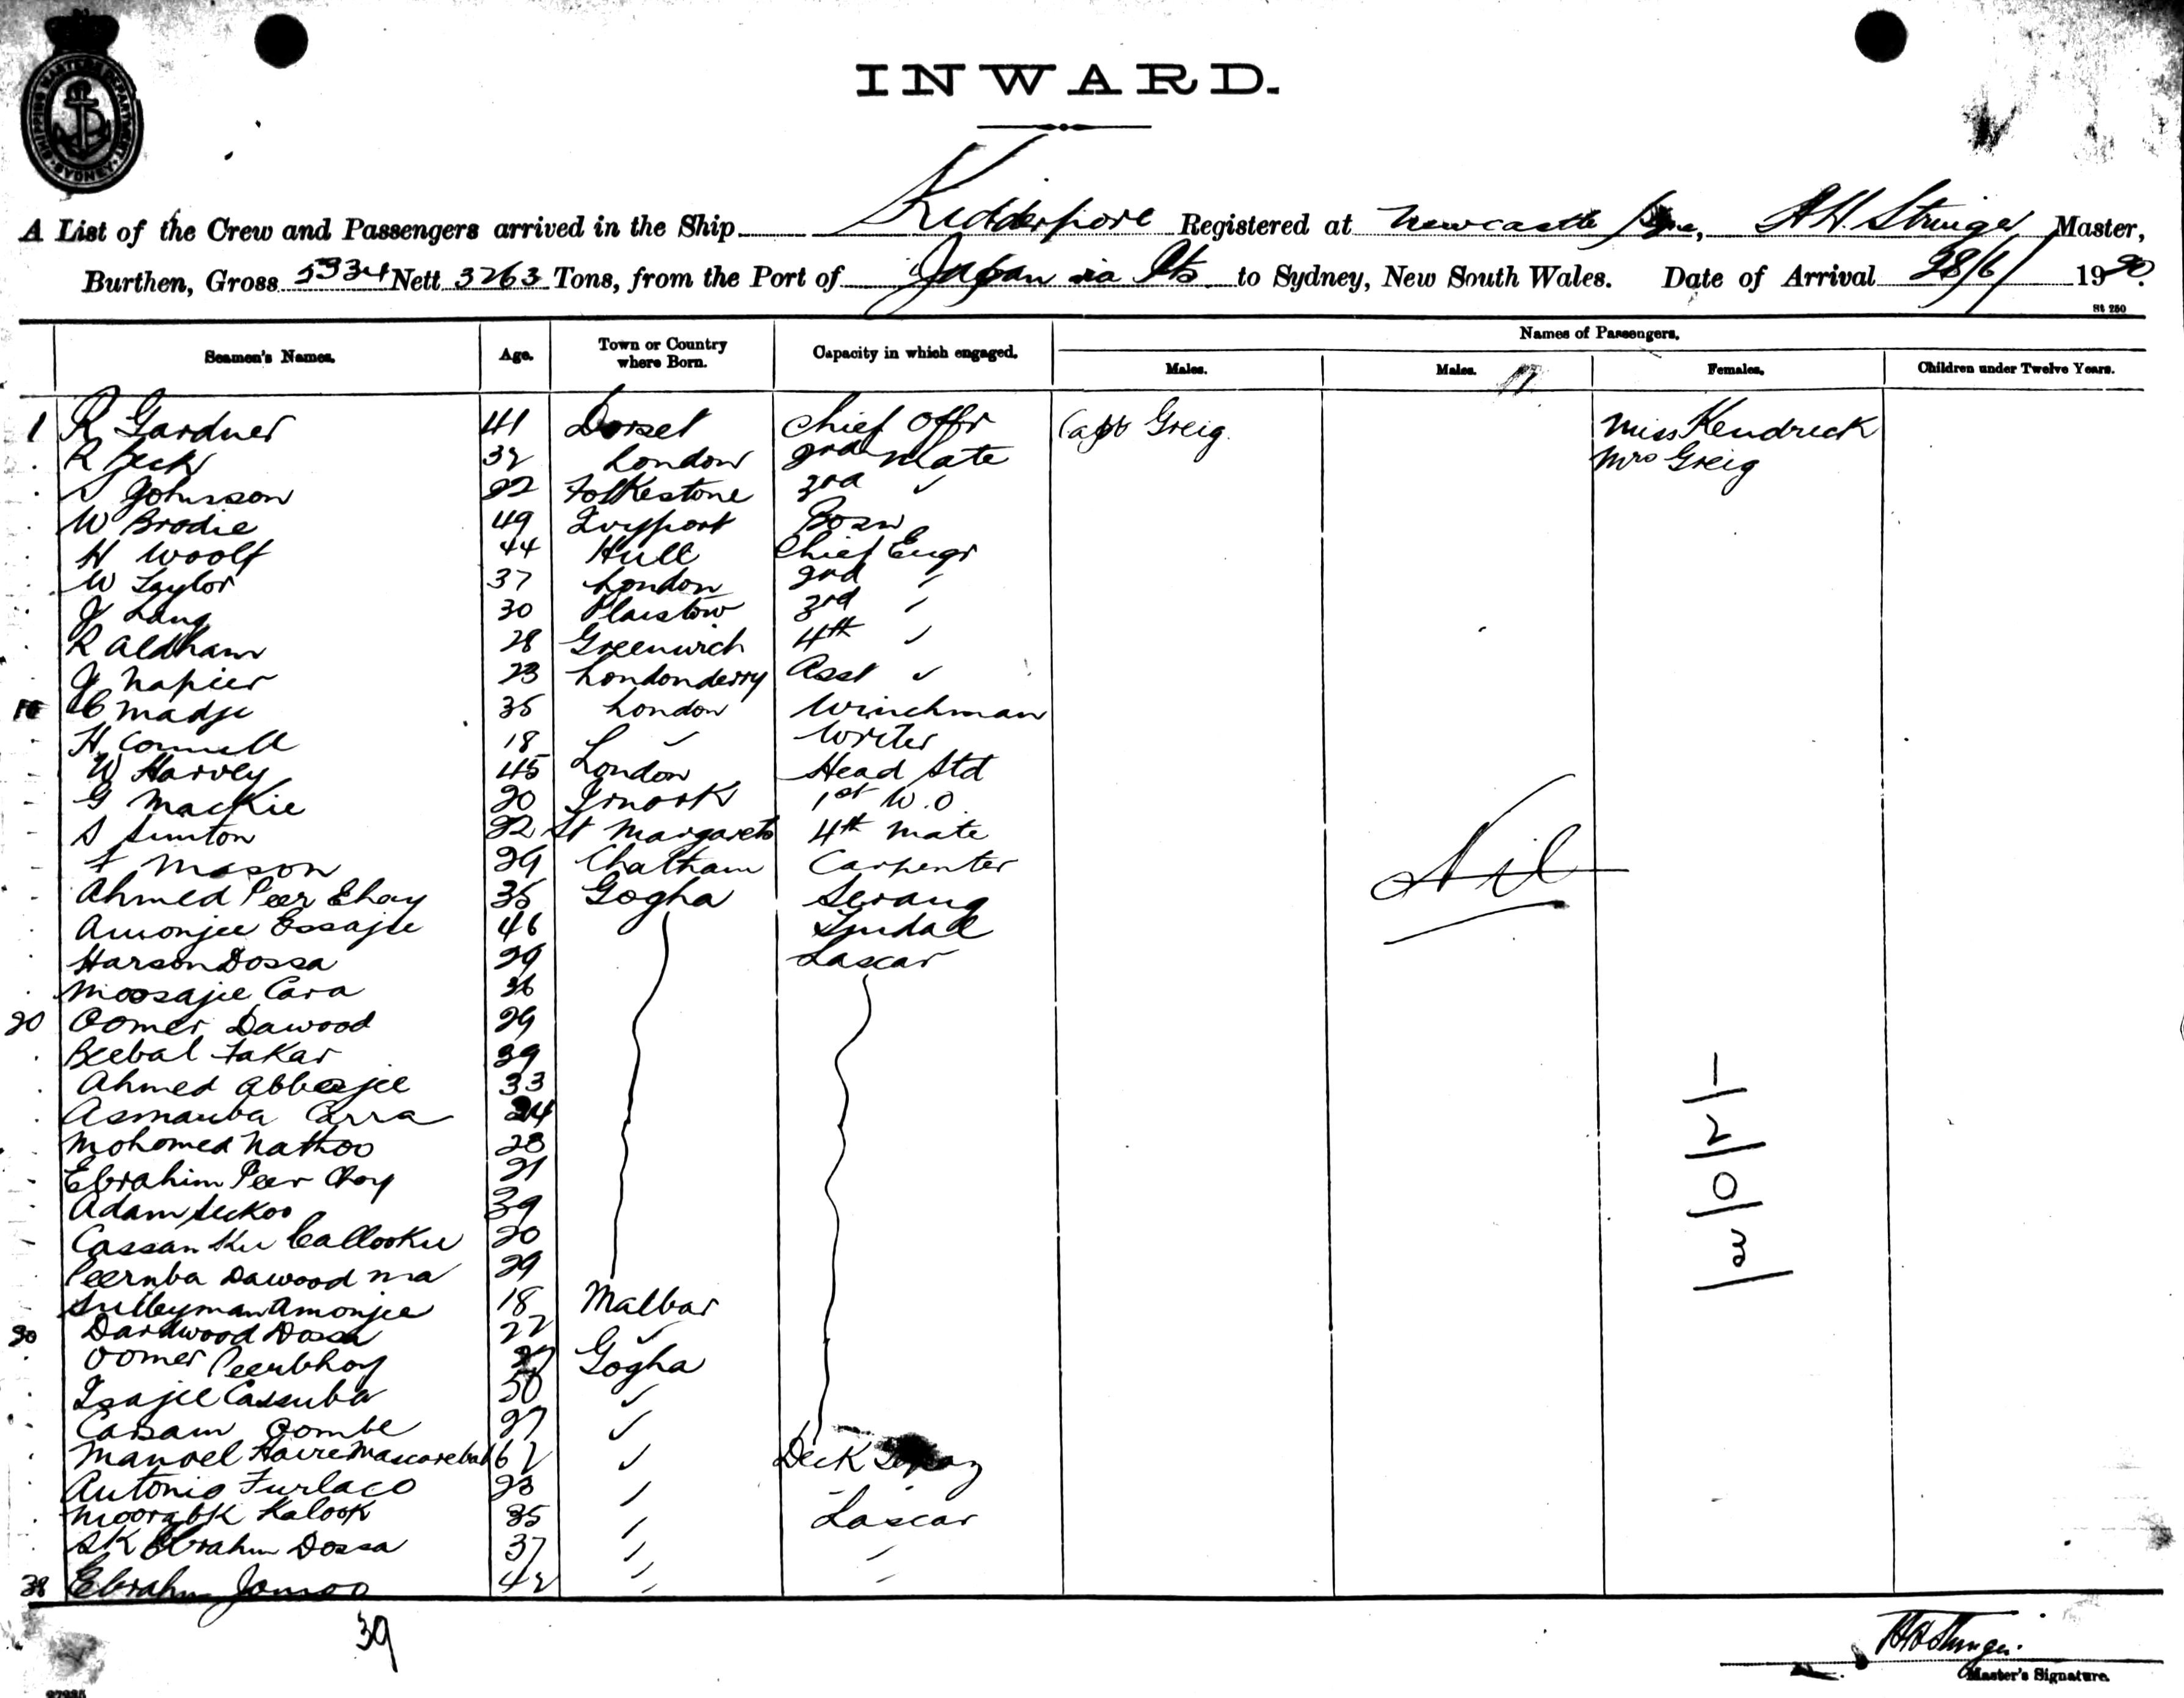 SHIPPING MASTERS DEPARTMENT SYDNEY
INWARD.
A List of the Crew and Passengers arrived in the Ship Kidderpore Registered at Newcastle, A.H. Stringer Master,
Burthen, Gross 5334 Nett 3263 Tons, from the Port of Japan via Pts to Sydney, New South Wales. Date of Arrival 28/6/ 1920.
St 250
Names of Passengers.
Seamen's Names. Age. Town or Country where Born. Capacity in which engaged. Males. Males. Females. Children under Twelve Years.
1 R Gardner 41 Dorset Chief Offr Capt Greig Miss Kendrick
R Beck 32 London 2nd Mate Mrs Greig
S Johnson 22 Folkestone 3rd "
W Brodie 49 Ivyport Bosn
H Woolf 44 Hull Chief Engr
W Taylor 37 London 2nd "
J Lang 30 Plaistow 3rd "
R Aldham 28 Greenwich 4th "
J Napier 23 Londonderry Asst "
10 C Madje 35 London Winchman
H Connell 18 L " Writer
W Harvey 45 London Head Std
G Mackie 20 1st W.O.
S Sunton 22 St Margarets 4th Mate
F Mason 29 Chatham Carpenter
Ahmed Peer Ebhoy 35 Gogha Serang
Amonjee Essajee 46 Tindal
Harson Dossa 29 Lascar
Moosajee Cara 36
20 Oomer Dawood 29
Beebal Fakar 39
Ahmed Abbasjee 33
Asmauba Carra 24
Mohomed Nathoo 28
Ebrahim Peer Bhoy 21
Adam Seckoo 39
Cassan Kee Callookee 20
Peernba Dawood na 29
Sulleyman Amonjee 18 Malbar
30 Dardwood Dossa 22 "
Oomer Peerbhoy 27 Gogha
Isajee Cassuba 50 "
Cassam Oombe 27 "
Manoel 62 " Deck
Antonio Furlaco 23 "
Kalook 35 " Lascar
SK Ebrahim Dossa 37 " "
38 Ebrahm Jomoo 42 " "
Nil
3/0/2/-
39
AH Stringer
Master's Signature.